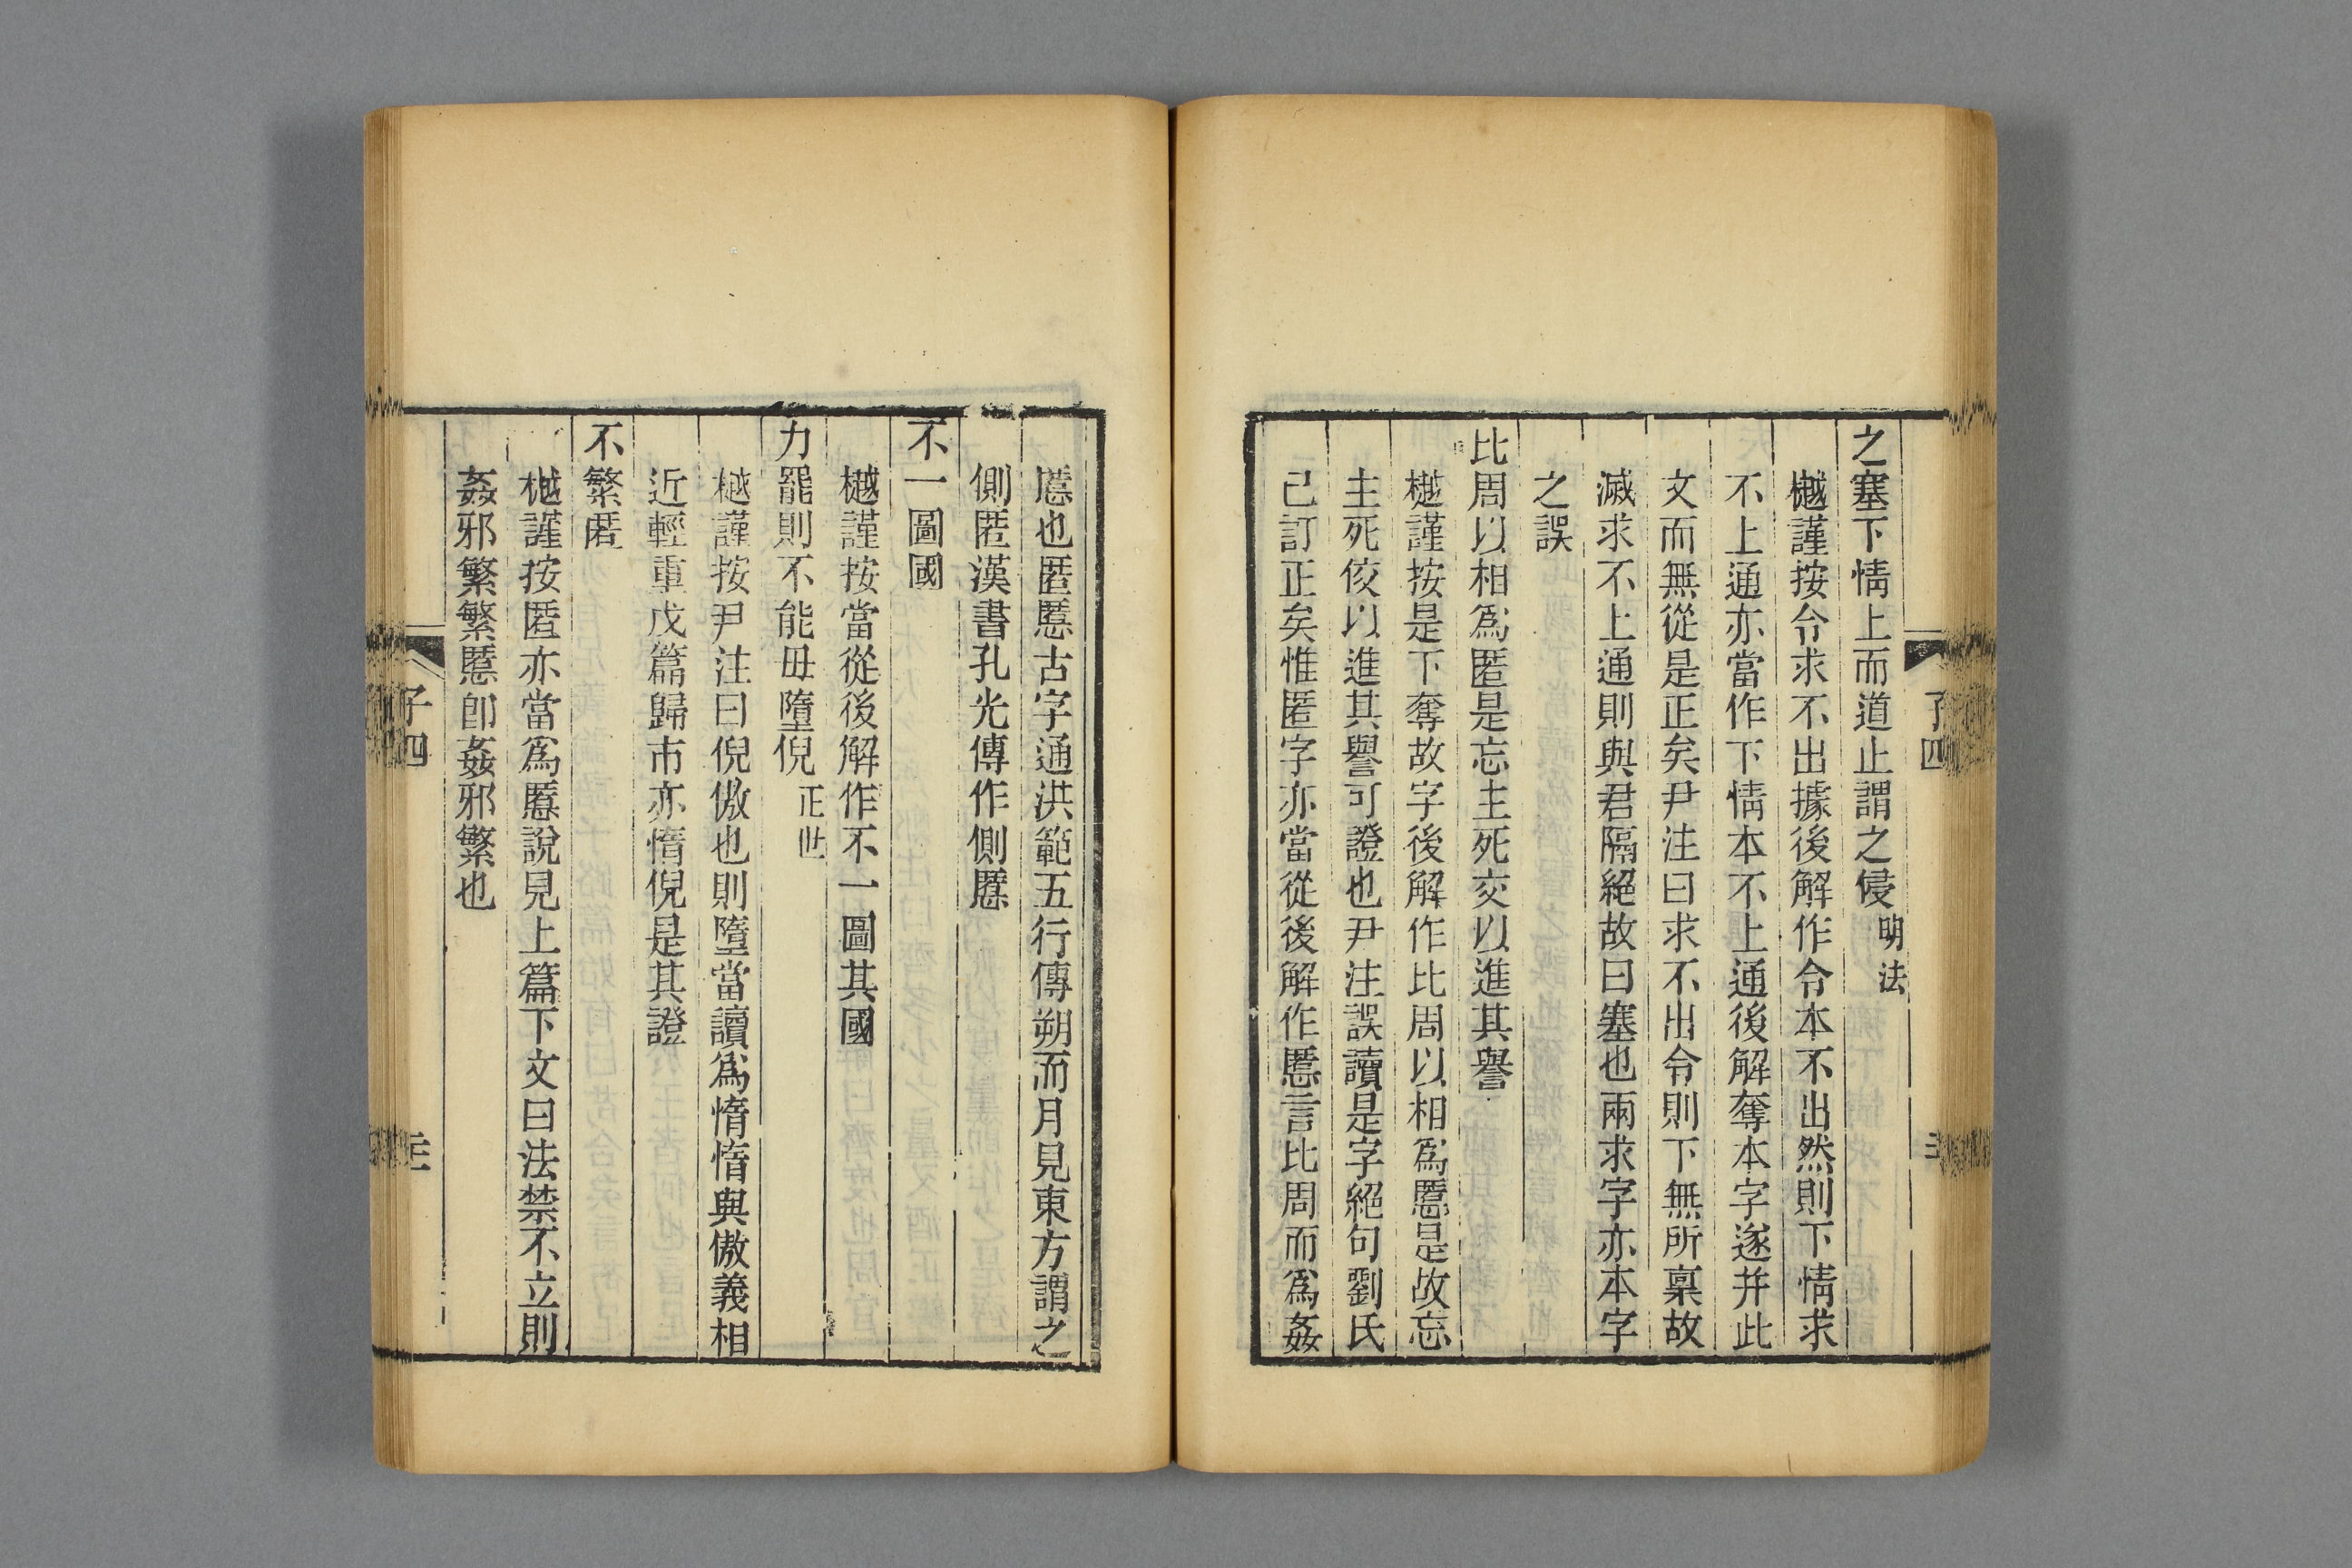 之塞下情上而道止謂之侵明法
樾謹按令求不出據後解作令本不出然則下情求
不上通亦當作下情本不上通後解奪本字遂并此
文而無從是正矣尹注曰求不出令則下無所稟故
滅求不上通則與君隔絕故曰塞也兩求字亦本字
之誤
比周以相爲匿是忘主死交以進其譽
樾謹按是下奪故字後解作比周以相爲慝是故忘
主死佼以進其譽可證也尹注誤讀是字絕句劉氏
已訂正矣惟匿字亦當從後解作慝言比周而爲姦
慝也匿慝古字通洪範五行傳朔而月見東方謂之
側匿漢書孔光傳作側慝
不一圖國
樾謹按當從後解作不一圖其國
力罷則不能毋墮倪正世
樾謹按尹注曰倪傲也則墮當讀爲惰惰與傲義相
近輕重戊篇歸市亦惰倪是其證
不繁匿
樾謹按匿亦當爲慝說見上篇下文曰法禁不立則
姦邪繁繁慝卽姦邪繁也
子四